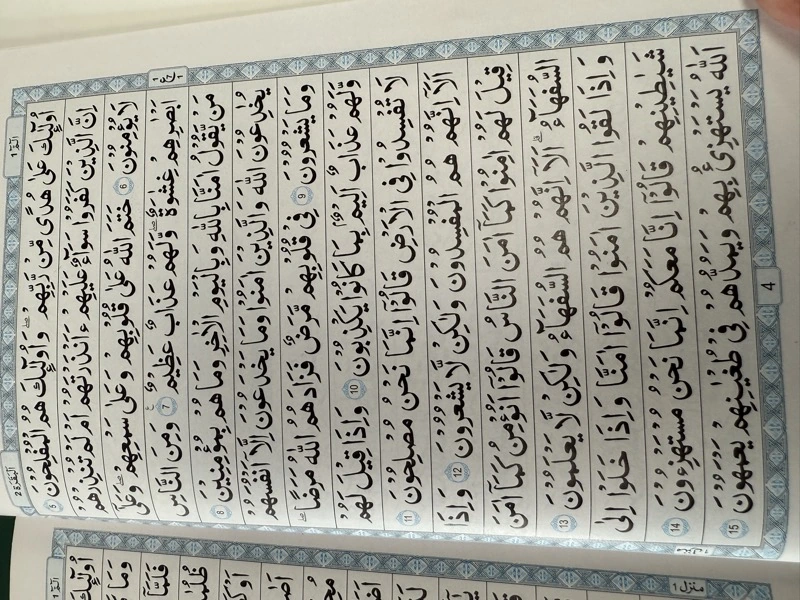 الٓمّٓ 1
اَلْبَقَرَة 2
اُولٰٓئِكَ عَلٰى هُدًى مِّنْ رَّبِّهِمْ ۗ وَاُولٰٓئِكَ هُمُ الْمُفْلِحُوْنَ 5
اِنَّ الَّذِيْنَ كَفَرُوْا سَوَآءٌ عَلَيْهِمْ ءَاَنْذَرْتَهُمْ اَمْ لَمْ تُنْذِرْهُمْ
لَا يُؤْمِنُوْنَ 6 خَتَمَ اللّٰهُ عَلٰى قُلُوْبِهِمْ وَعَلٰى سَمْعِهِمْ ۗ وَعَلٰٓى
اَبْصَارِهِمْ غِشَاوَةٌ ۫ وَّلَهُمْ عَذَابٌ عَظِيْمٌ 7 وَمِنَ النَّاسِ
مَنْ يَّقُوْلُ اٰمَنَّا بِاللّٰهِ وَبِالْيَوْمِ الْاٰخِرِ وَمَا هُمْ بِمُؤْمِنِيْنَ 8
يُخٰدِعُوْنَ اللّٰهَ وَالَّذِيْنَ اٰمَنُوْا ۚ وَمَا يَخْدَعُوْنَ اِلَّآ اَنْفُسَهُمْ
وَمَا يَشْعُرُوْنَ 9 فِيْ قُلُوْبِهِمْ مَّرَضٌ ۙ فَزَادَهُمُ اللّٰهُ مَرَضًا ۚ
وَلَهُمْ عَذَابٌ اَلِيْمٌۢ بِمَا كَانُوْا يَكْذِبُوْنَ 10 وَاِذَا قِيْلَ لَهُمْ
لَا تُفْسِدُوْا فِى الْاَرْضِ ۙ قَالُوْٓا اِنَّمَا نَحْنُ مُصْلِحُوْنَ 11
اَلَآ اِنَّهُمْ هُمُ الْمُفْسِدُوْنَ وَلٰكِنْ لَّا يَشْعُرُوْنَ 12 وَاِذَا
قِيْلَ لَهُمْ اٰمِنُوْا كَمَآ اٰمَنَ النَّاسُ قَالُوْٓا اَنُؤْمِنُ كَمَآ اٰمَنَ
السُّفَهَآءُ ۗ اَلَآ اِنَّهُمْ هُمُ السُّفَهَآءُ وَلٰكِنْ لَّا يَعْلَمُوْنَ 13
وَاِذَا لَقُوا الَّذِيْنَ اٰمَنُوْا قَالُوْٓا اٰمَنَّا ۚ وَاِذَا خَلَوْا اِلٰى
شَيٰطِيْنِهِمْ ۙ قَالُوْٓا اِنَّا مَعَكُمْ ۙ اِنَّمَا نَحْنُ مُسْتَهْزِءُوْنَ 14
اَللّٰهُ يَسْتَهْزِئُ بِهِمْ وَيَمُدُّهُمْ فِيْ طُغْيَانِهِمْ يَعْمَهُوْنَ 15
4
منزل ١
الٓمّٓ 1
اُولٰٓئِكَ
منزل ١